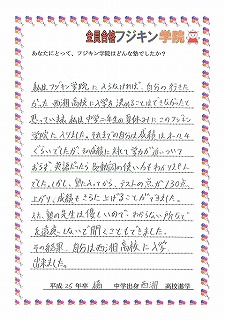 全員合格フジキン学院
あなたにとって、フジキン学院はどんな塾でしたか?
私はフジキン学院に入らなければ、自分の行きた
かった西湘高校に入学を決めることはできなかったと
思っています。私は中学二年生の夏休みに、このフジキン
学院に入りました。それまでの自分は成績はオール4
ぐらいでしたが、その成績に対して学力がおいついて
おらず、英語だったら be動詞の使い方もわかりません
でした。しかし、塾に入ってから、テストの点が130点
上がり、成績もさらに上げることができました。
また、塾の先生は優しいので、わからない所など
を遠慮しないで聞くこともできました。
その結果、自分は西湘高校に入学
出来ました。
平成26年卒 橘 中学出身 西湘 高校進学